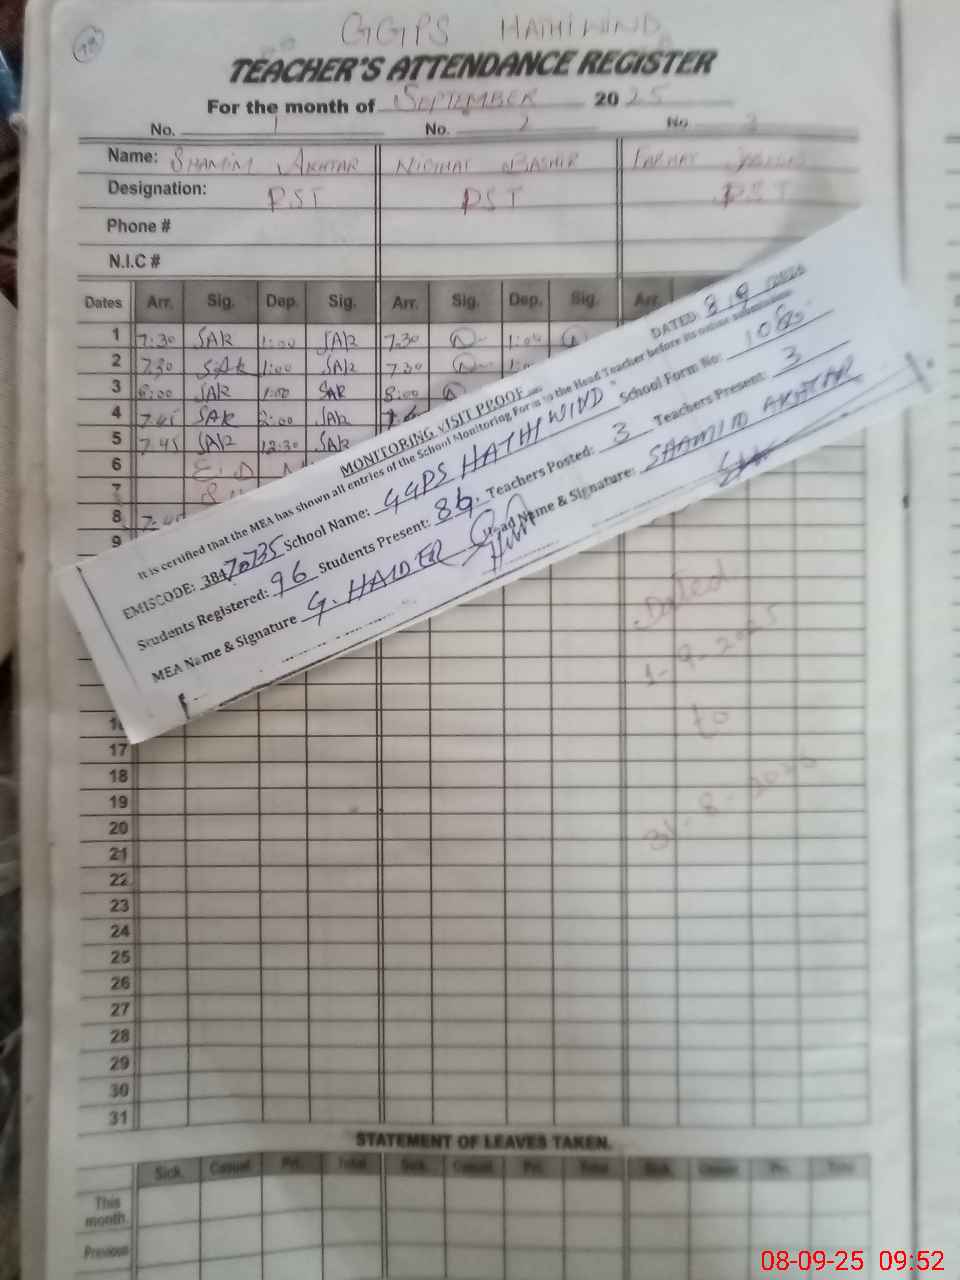 GGPS HATHIWIND
TEACHER'S ATTENDANCE REGISTER
For the month of SEPTEMBER 2025
No. 1 No. 2 No. 3
Name: SHAMIM AKHTAR NIGHAT BASHIR FARHAT
Designation: PST PST PST
Phone #
N.I.C #
Dates Arr. Sig. Dep. Sig. Arr. Sig. Dep. Sig. Arr.
1 7:30 SAK 1:00 SAK 7:30 1:00
2 7:30 SAK 1:00 SAK 7:30
3 8:00 SAK 1:00 SAK 8:00
4 7.45 SAK 2:00 SAK
5 7.45 SAK 12:30 SAK
6
7
8
9
MONITORING VISIT PROOF DATED:
It is certified that the MEA has shown all entries of the School Monitoring Form to the Head Teacher before its online submission.
EMISCODE: 38470735 School Name: GGPS HATHIWIND School Form No:
Students Registered: 96 Students Present: Teachers Posted: 3 Teachers Present: 3
MEA Name & Signature G. HAIDER Head Name & Signature: SHAMIM AKHTAR
Dated
1-9-2025
to
31-8-2025
17
18
19
20
21
22
23
24
25
26
27
28
29
30
31
STATEMENT OF LEAVES TAKEN.
Sick. Casual Pri. Total Sick. Casual Pri. Total Sick. Casual Pri. Total
This month.
Previous
08-09-25 09:52